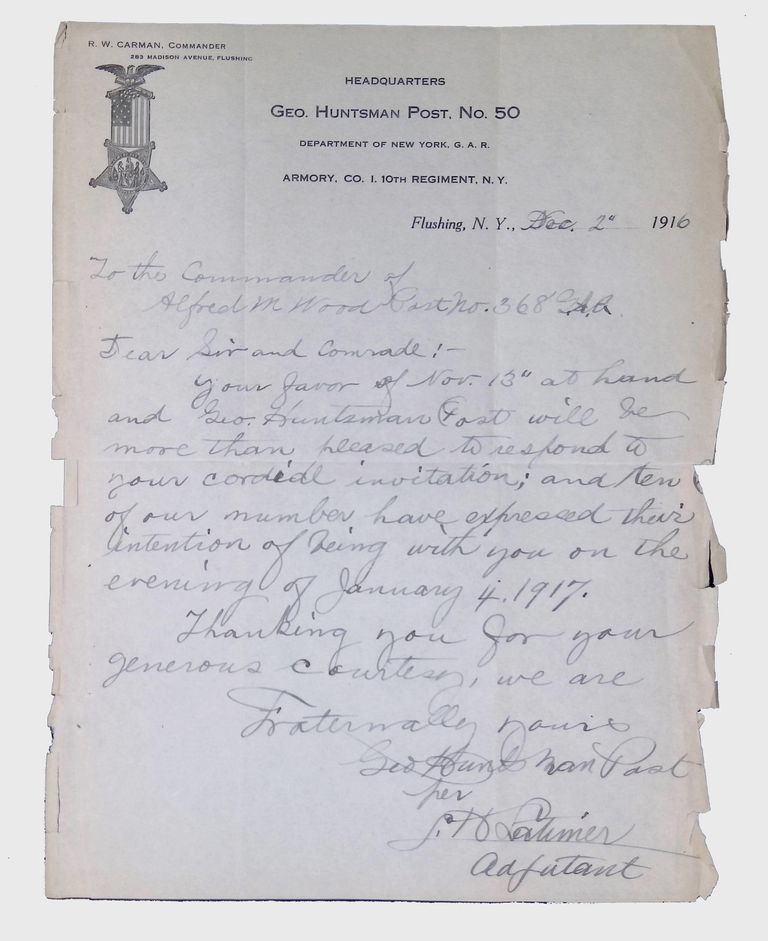 R. W. CARMAN, COMMANDER
283 MADISON AVENUE, FLUSHING
HEADQUARTERS
GEO. HUNTSMAN POST, NO. 50
DEPARTMENT OF NEW YORK, G. A. R.
ARMORY, CO. I. 10TH REGIMENT, N. Y.
Flushing, N. Y., Dec. 2" 1916
To the Commander of
Alfred M Wood Post No. 368 G.A.R.
Dear Sir and Comrade! -
Your favor of Nov. 13" at hand
and Geo. Huntsman Post will be
more than pleased to respond to
your cordial invitation; and ten
of our number have expressed their
intention of being with you on the
evening of January 4. 1917.
Thanking you for your
generous courtesy, we are
Fraternally yours
Geo Huntsman Post
per
L. H Latimer
Adjutant